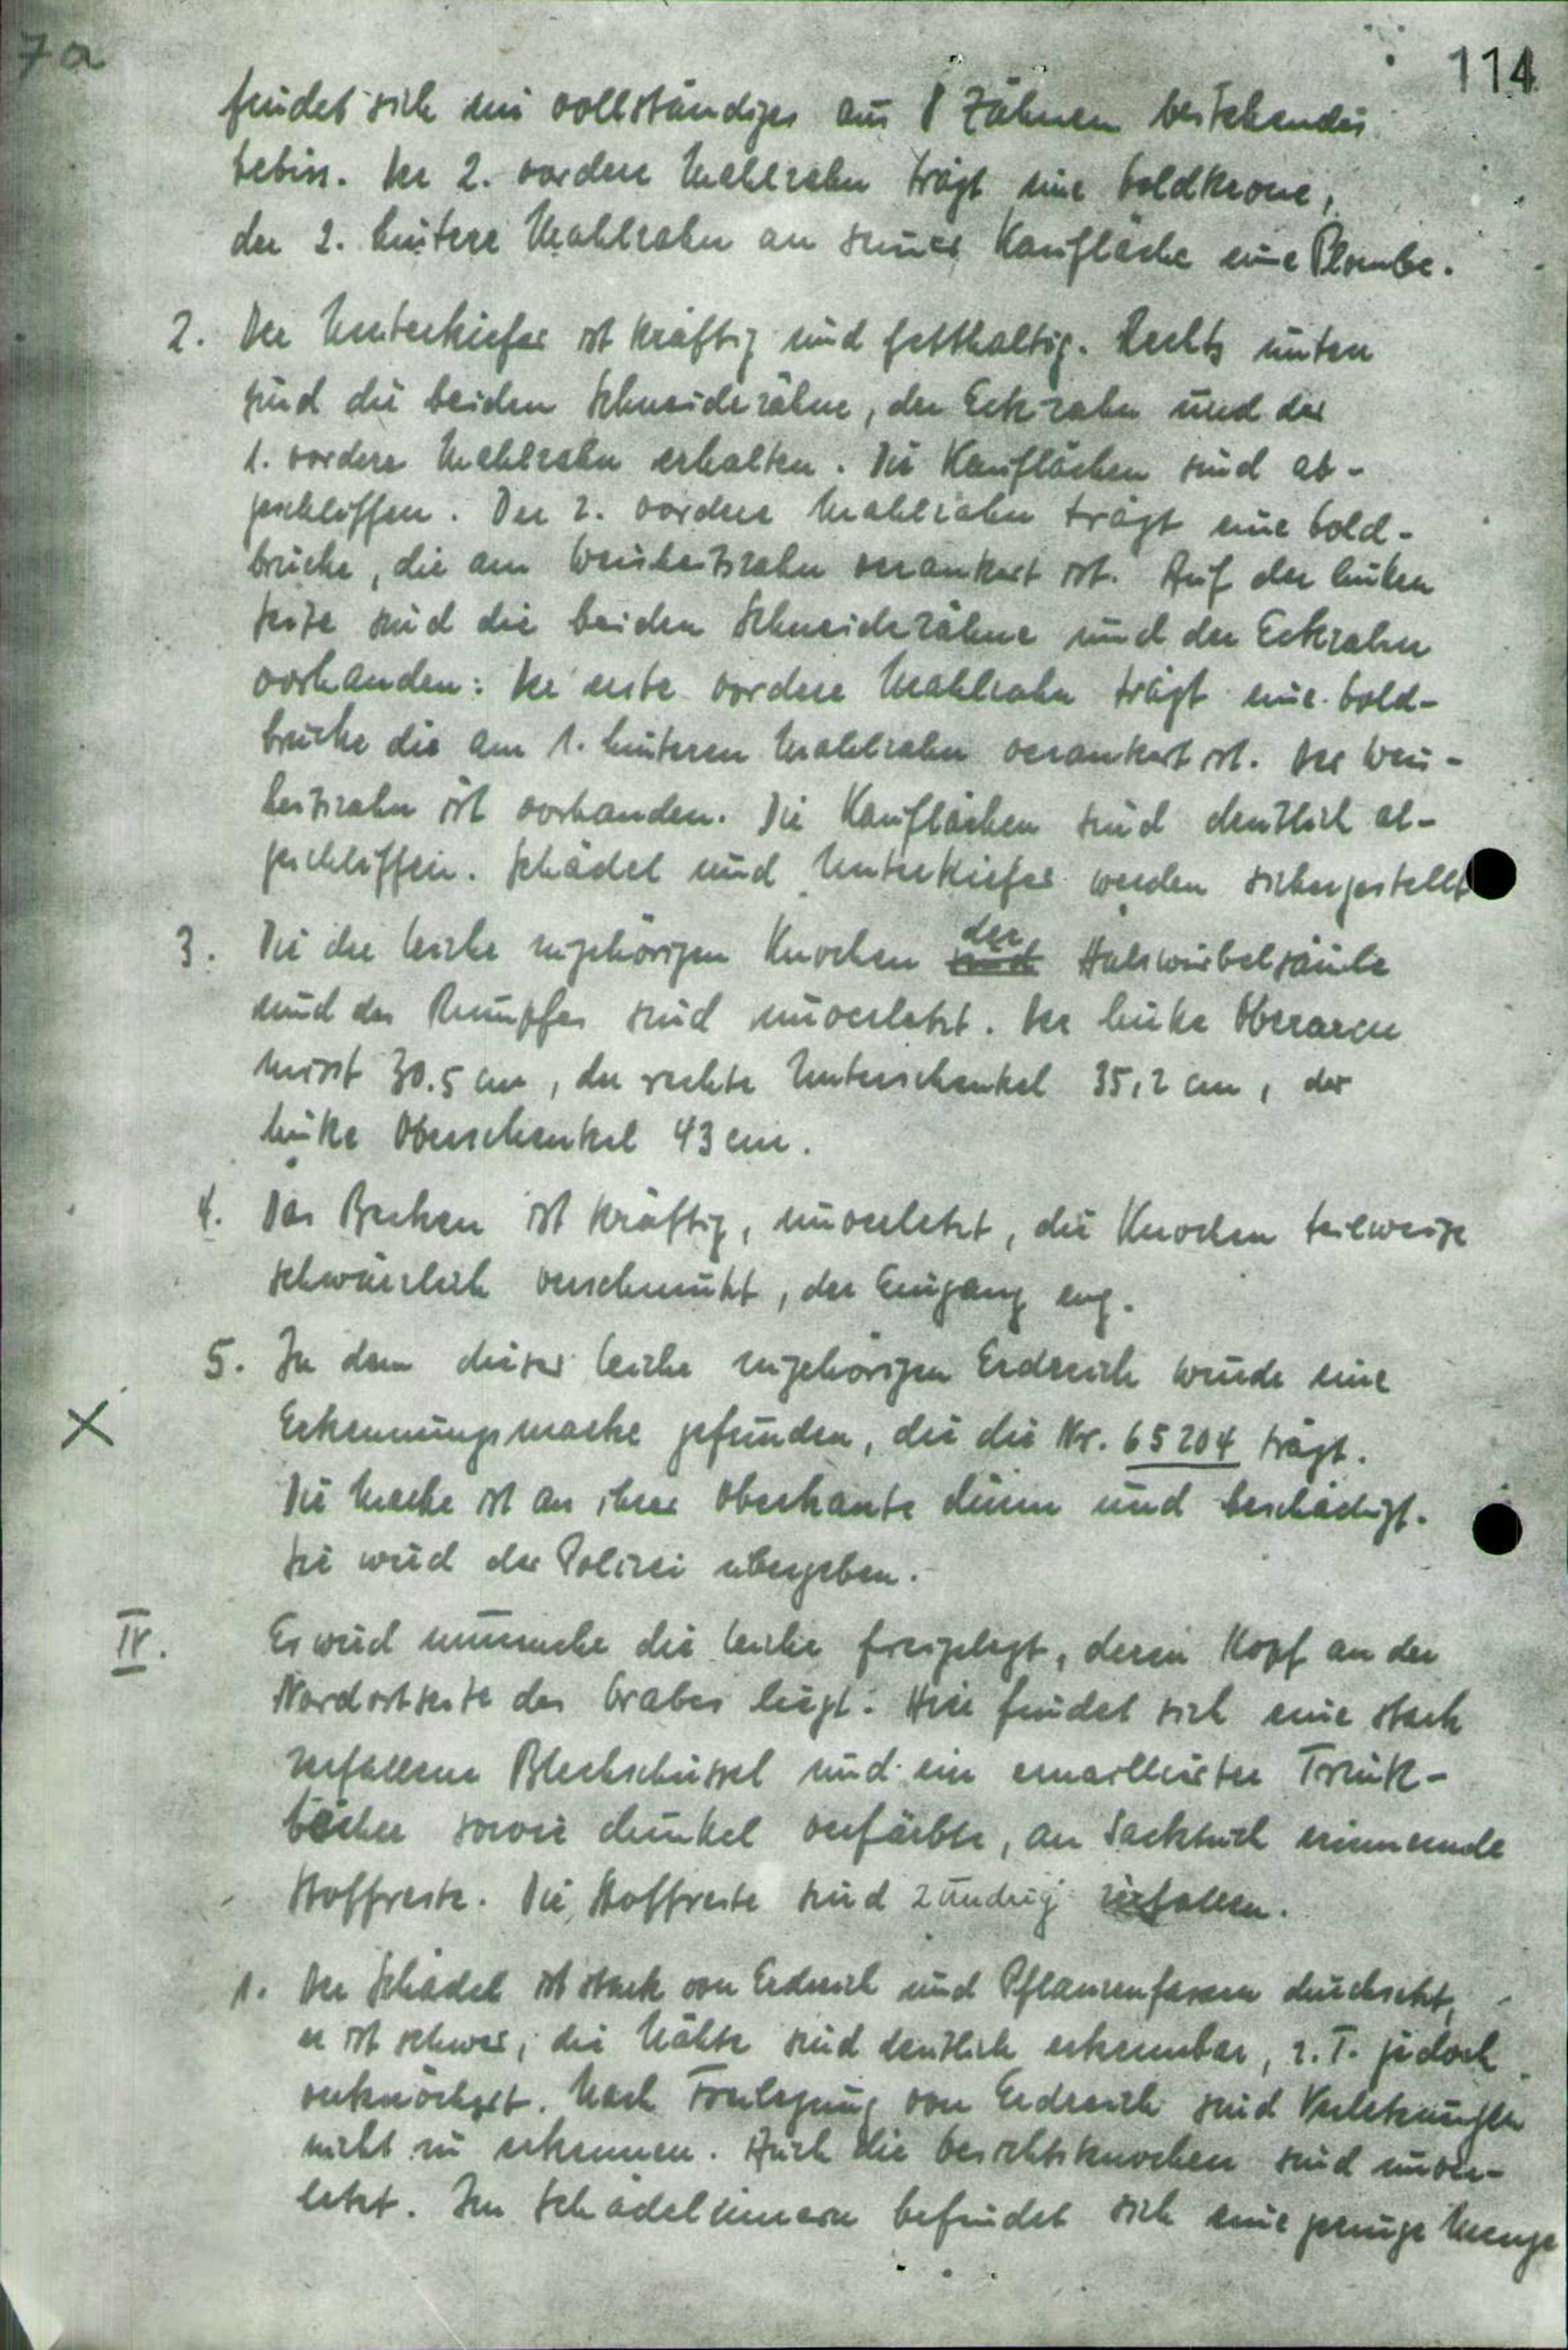 7a
114
findet sich ein vollständiges aus 8 Zähnen bestehendes
Gebiss. Der 2. vordere Mahlzahn trägt eine Goldkrone,
der 2. hintere Mahlzahn an seiner Kaufläche eine Plombe.
2. Der Unterkiefer ist kräftig und fetthaltig. Rechts unten
sind die beiden Schneidezähne, der Eckzahn und der
1. vordere Mahlzahn erhalten. Die Kauflächen sind ab-
geschliffen. Der 2. vordere Mahlzahn trägt eine Gold-
brücke, die am Weisheitszahn verankert ist. Auf der linken
Seite sind die beiden Schneidezähne und der Eckzahn
vorhanden: Der erste vordere Mahlzahn trägt eine Gold-
brücke die am 1. hinteren Mahlzahn verankert ist. Der Weis-
heitszahn ist vorhanden. Die Kauflächen sind deutlich ab-
geschliffen. Schädel und Unterkiefer werden sichergestellt
3. Die der Leiche zugehörigen Knochen der Halswirbelsäule
und des Rumpfes sind unverletzt. Der linke Oberarm
misst 30.5 cm, der rechte Unterschenkel 35,2 cm, der
linke Oberschenkel 43 cm.
4. Das Becken ist kräftig, unverletzt, die Knochen teilweise
schwärzlich verschmutzt, der Eingang eng.
5. In dem dieser Leiche zugehörigen Erdreich wurde eine
X Erkennungsmarke gefunden, die die Nr. 65204 trägt.
Die Marke ist an ihrer Oberkante dünn und beschädigt.
Sie wird der Polizei übergeben.
IV. Es wird nunmehr die Leiche freigelegt, deren Kopf an der
Nordostseite des Grabes liegt. Hier findet sich eine stark
zerfallene Blechschüssel und ein emaillierter Trink-
becher sowie dunkel verfärbte, an Sacktuch erinnernde
Stoffreste. Die Stoffreste sind zundrig zerfallen.
1. Der Schädel ist stark von Erdreich und Pflanzenfasern durchsetzt,
er ist schwer, die Nähte sind deutlich erkennbar, z. T. jedoch
verknöchert. Nach Freilegung von Erdreich sind Verletzungen
nicht zu erkennen. Auch die Gesichtsknochen sind unver-
letzt. Im Schädelinnern befindet sich eine geringe Menge